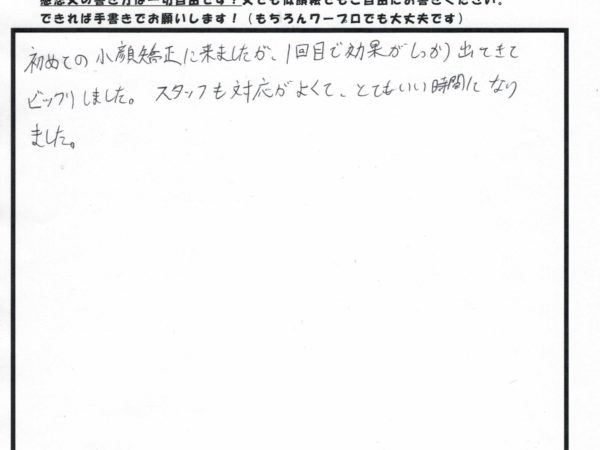 できれば手書きでお願いします！（もちろんワープロでも大丈夫です）
初めての小顔矯正に来ましたが、1回目で効果がしっかり出てきて
ビックリしました。スタッフも対応がよくて、とてもいい時間になり
ました。